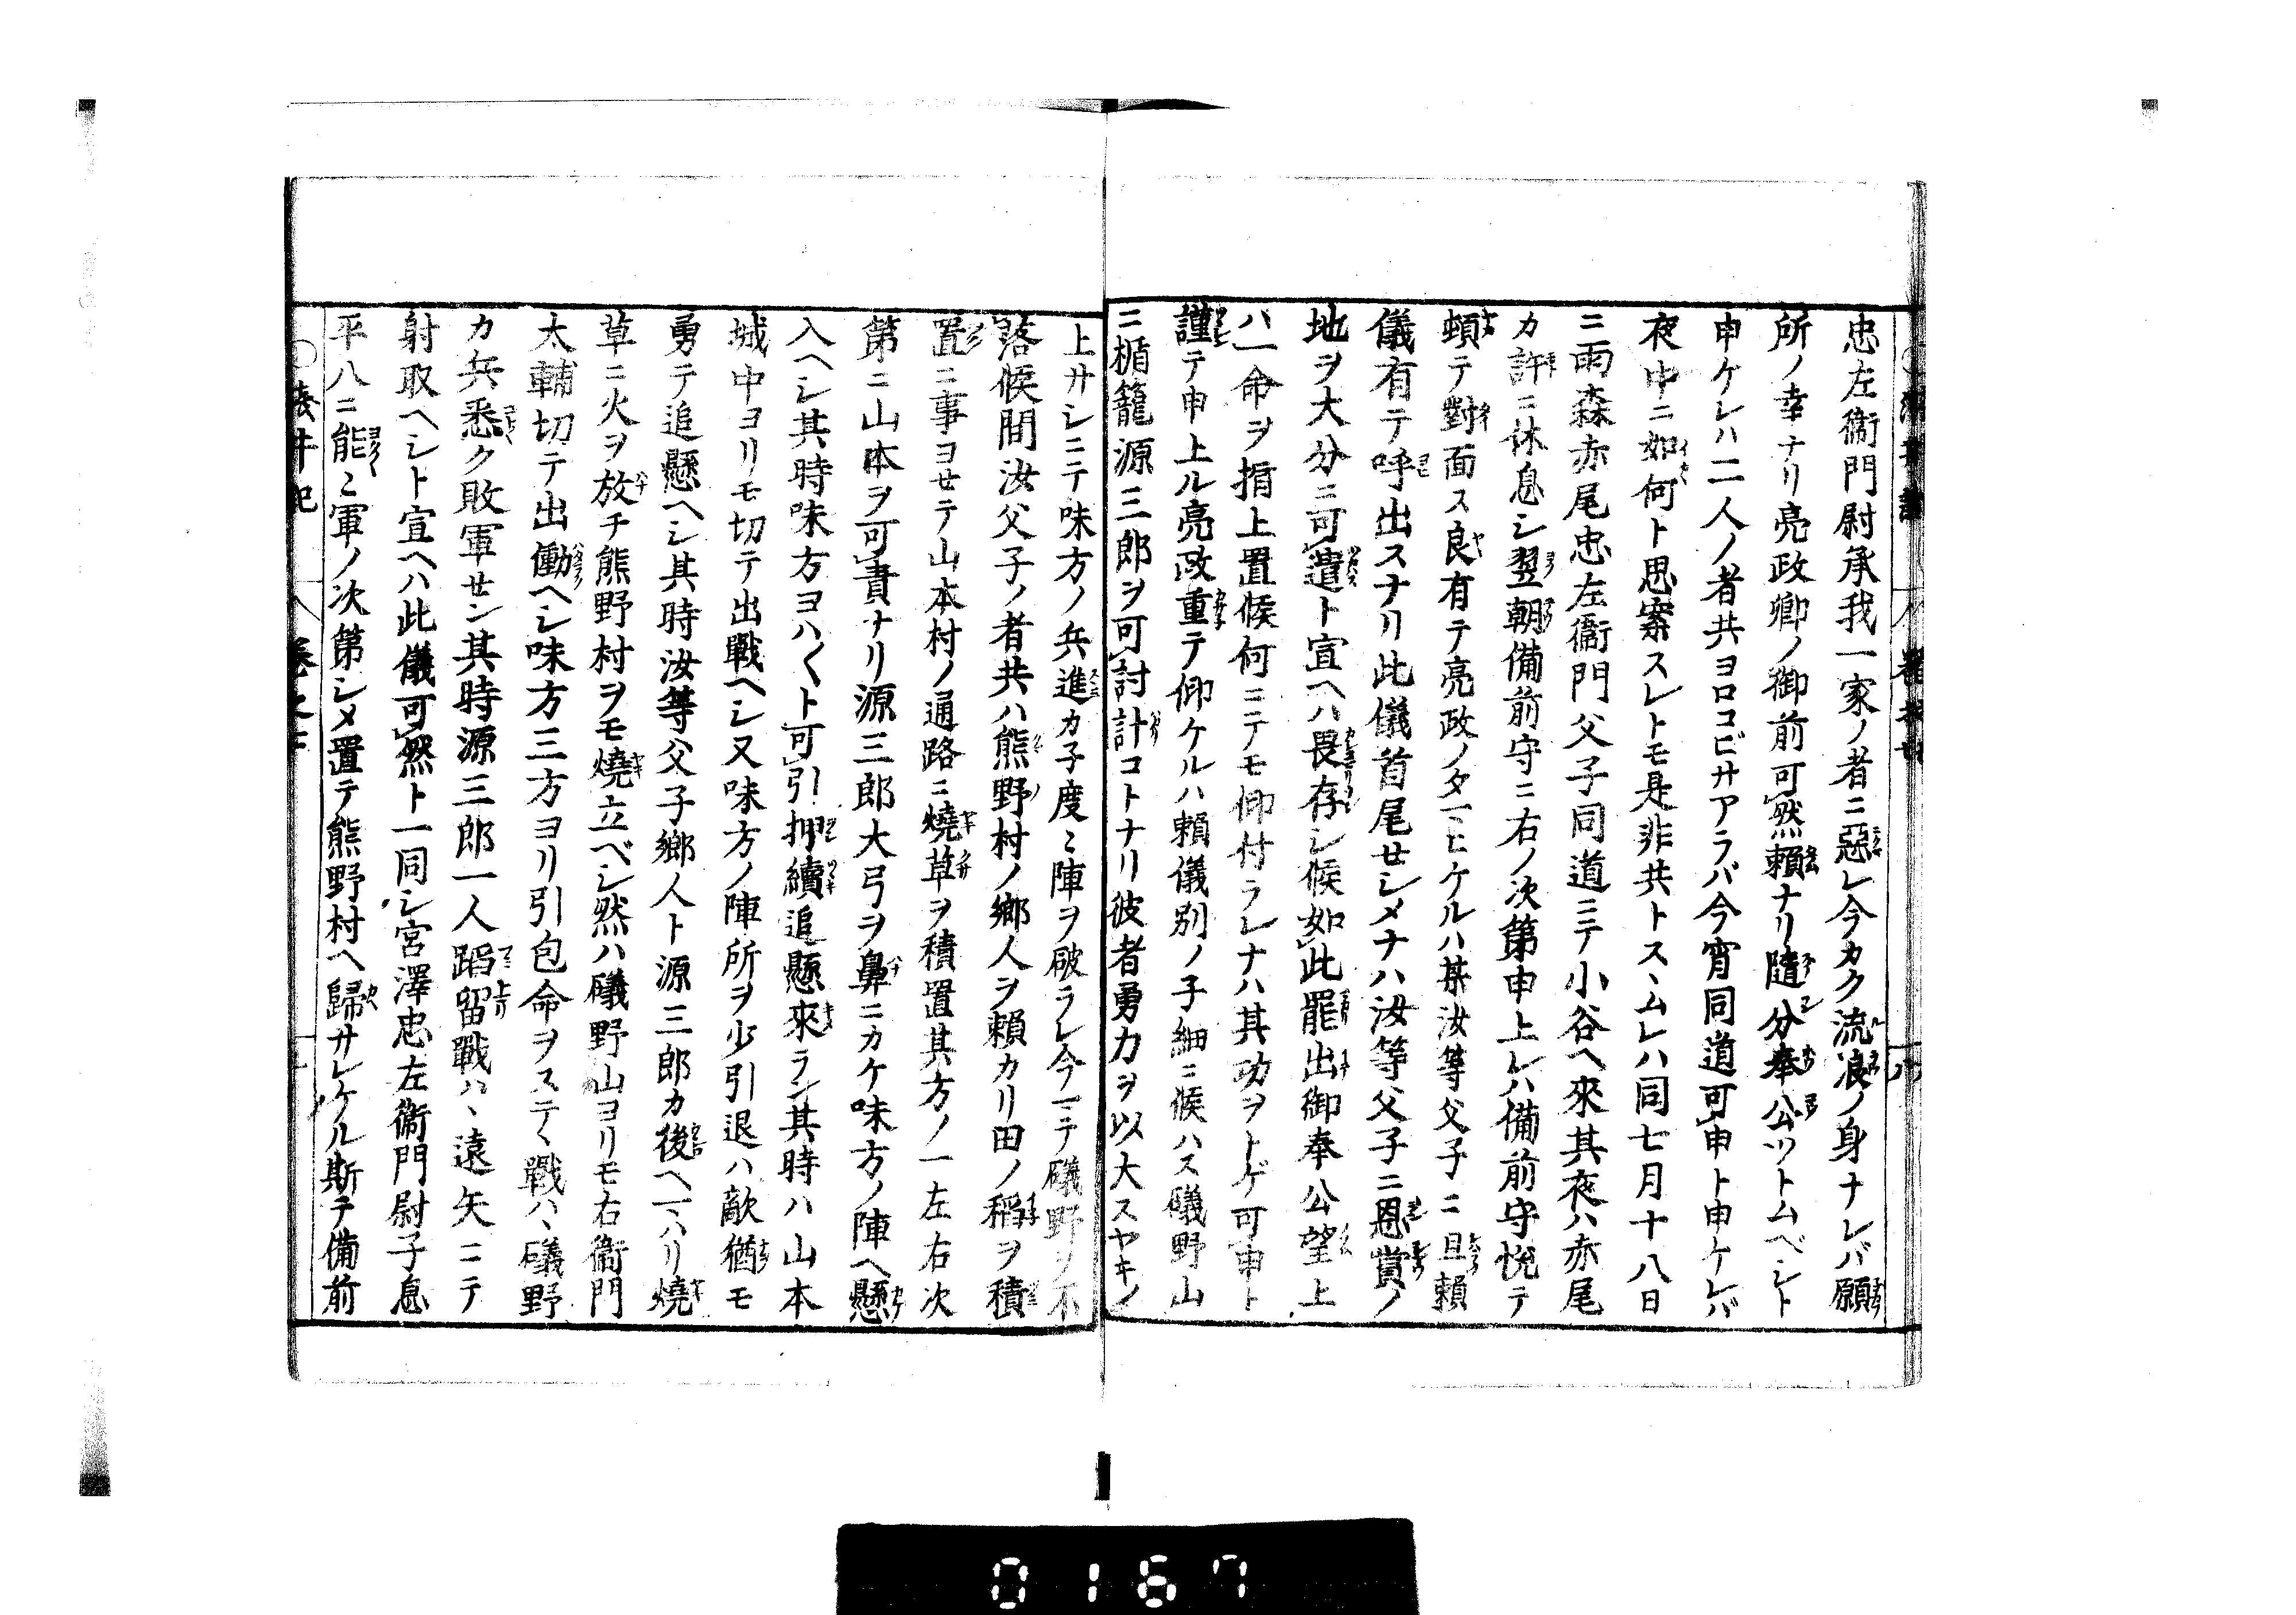 忠左衞門尉承我一家ノ者ニ惡レ今カク流浪ノ身ナレバ願
所ノ幸ナリ亮政卿ノ御前可然頼ナリ隨分奉公ツトムベシト
申ケレハ二人ノ者共ヨロコビサアラバ今宵同道可申ト申ケレバ
夜中ニ如何ト思案スレトモ是非共トスヽムレハ同七月十八日
ニ雨森赤尾忠左衞門父子同道ニテ小谷ヘ來其夜ハ赤尾
カ許ニ休息シ翌朝備前守ニ右ノ次第申上レハ備前守悅テ
頓テ對面ス良有テ亮政ノタマヒケルハ某汝等父子ニ且頼
儀有テ呼出スナリ此儀首尾セシメナハ汝等父子ニ恩賞ノ
地ヲ大分ニ可遣ト宣ヘハ畏存シ候如此罷出御奉公望上
ハ一命ヲ捐上置候何ニテモ仰付ラレナハ其功ヲトゲ可申ト
謹テ申上ル亮政重テ仰ケルハ頼儀別ノ子細ニ候ハス礒野山
ニ楯籠源三郎ヲ可討計コトナリ彼者勇力ヲ以大スヤキノ
上サシニテ味方ノ兵進カ子度ミ陣ヲ破ラレ今ニテ礒野ヲ不
落候間汝父子ノ者共ハ熊野村ノ鄕人ヲ頼カリ田ノ稻ヲ積
置ニ事ヨセテ山本村ノ通路ニ燒草ヲ積置其方ノ一左右次
第ニ山本ヲ可責ナリ源三郎大弓ヲ鼻ニカケ味方ノ陣ヘ懸
入ヘシ其時味方ヨハ〱ト可引押續追懸來ラン其時ハ山本
城中ヨリモ切テ出戰ヘシ又味方ノ陣所ヲ少引退ハ敵猶モ
勇テ追懸ヘシ其時汝等父子鄕人ト源三郎カ後ヘマハリ燒
草ニ火ヲ放チ熊野村ヲモ燒立ベシ然ハ礒野山ヨリモ右衞門
大輔切テ出働ヘシ味方三方ヨリ引包命ヲステヽ戰ハヽ礒野
カ兵悉ク敗軍セン其時源三郎一人蹈留戰ハヽ遠矢ニテ
射取ヘシト宣ヘハ此儀可然ト一同シ宮澤忠左衞門尉子息
平八ニ能ミ軍ノ次第シメ置テ熊野村ヘ歸サレケル斯テ備前
0167